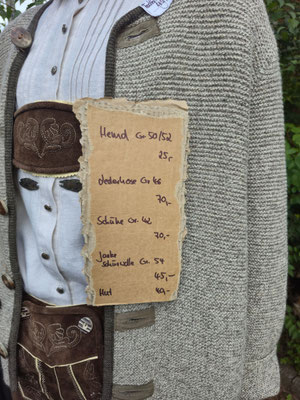 Hemd Gr 50/52
25,-
Lederhose Gr. 46
70,-
Schuhe Gr. 42
70,-
Janker
Schurwolle Gr. 54
45,-
Hut 40,-